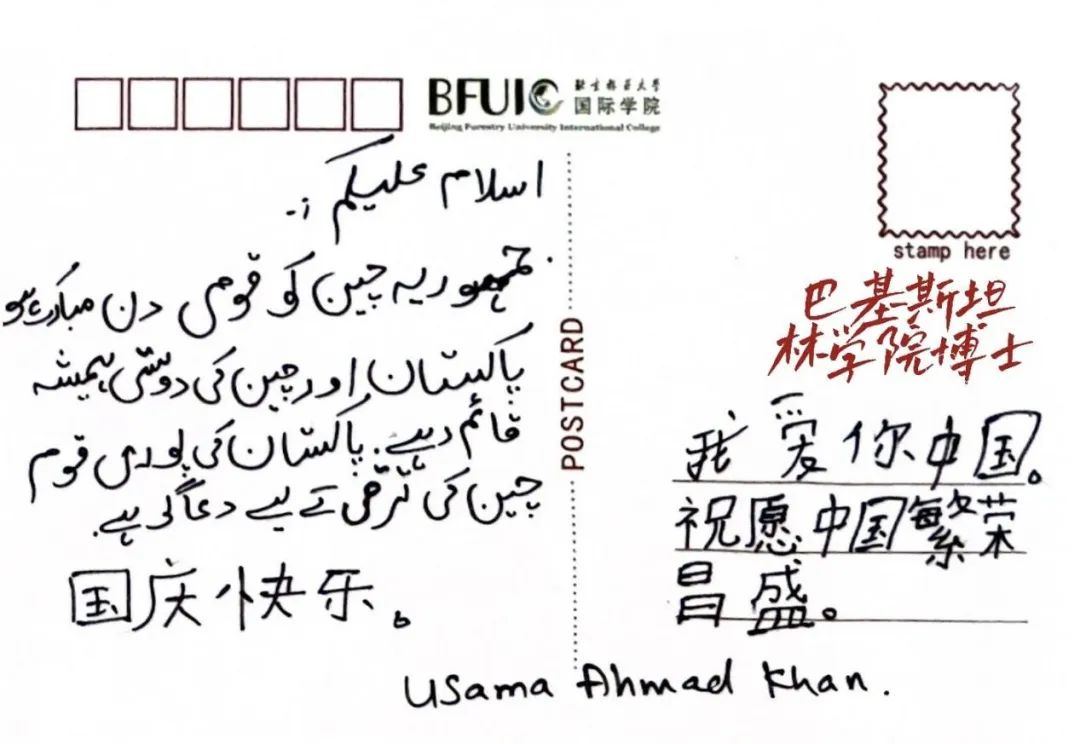 BFUIC 北京林业大学
国际学院
Beijing Forestry University International College
اسلام علیکم :-
جمہوریہ چین کو قومی دن مبارک ہو
پاکستان اور چین کی دوستی ہمیشہ
قائم رہے. پاکستان کی پوری قوم
چین کی ترقی کے لیے دعاگو ہے.
国庆快乐。
POSTCARD
stamp here
巴基斯坦
林学院博士
我爱你中国。
祝愿中国繁荣
昌盛。
Usama Ahmad Khan.